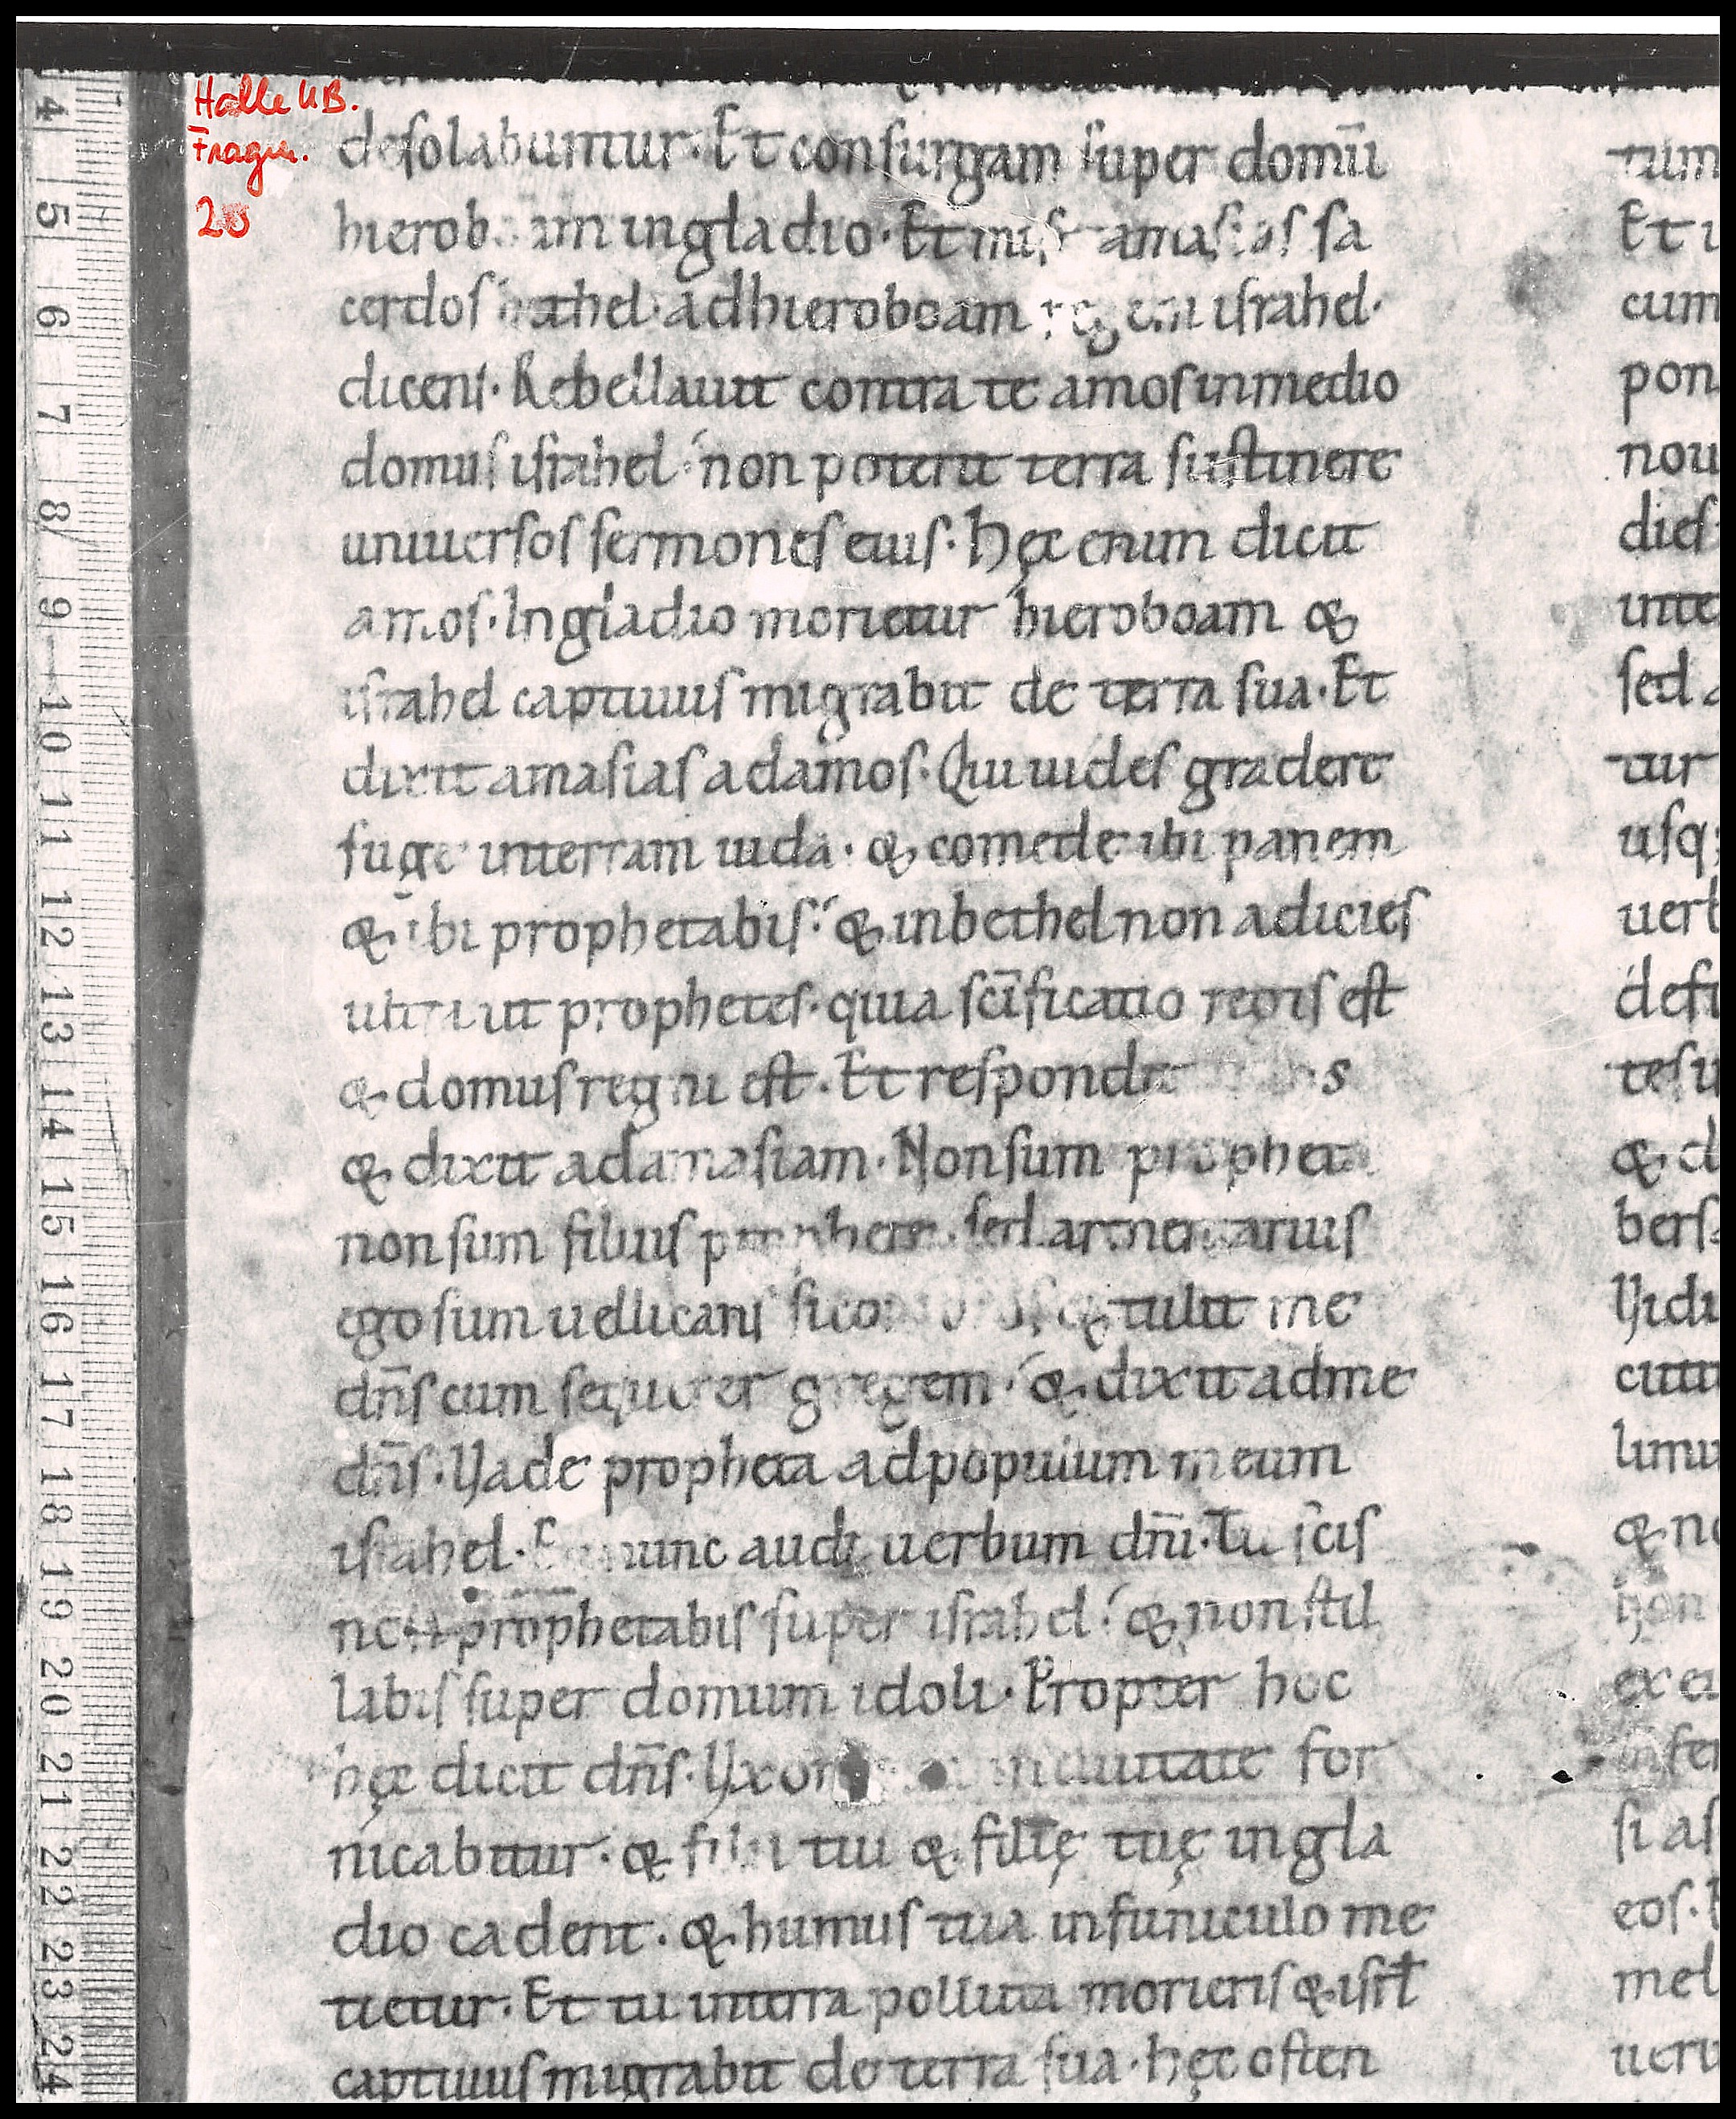 Halle UB.
Fragm.
20
desolabuntur. Et consurgam super domū
hieroboam in gladio. Et misit amasias sa
cerdos bethel. ad hieroboam regem israhel.
dicens. Rebellauit contra te amos in medio
domus israhel. non poterit terra sustinere
uniuersos sermones eius. hęc enim dicit
amos. In gladio morietur hieroboam &
israhel captiuus migrabit de terra sua. Et
dixit amasias ad amos. Qui uides gradere
fuge in terram iuda. & comede ibi panem
& ibi prophetabis. & in bethel non adicies
ultra ut prophetes. quia scīficatio regis est
& domus regni est. Et respondit
& dixit ad amasiam. Non sum propheta
non sum filius prophete. sed armentarius
ego sum uellicans & tulit me
dn̄s cum sequerer gregem. & dixit ad me
dn̄s. Vade propheta ad populum meum
israhel. Et nunc audi uerbum dn̄i. Tu icis
non prophetabis super israhel. & non stil
labis super domum idoli. Propter hoc
hęc dicit dn̄s. Vxor in ciuitate for
nicabitur. & filii tui & filię tuę in gla
dio cadent. & humus tua in funiculo me
tietur. Et tu in terra polluta morieris & isrl̄
captiuus migrabit de terra sua. hęc osten
tum
Et i
cum
pon
nou
dies
inte
sed a
tur
usq;
uerb
defi
tesu
& d
bers
Vidi
cuti
limu
& no
non
ex ei
infe
si as
eos.
mel
ueru